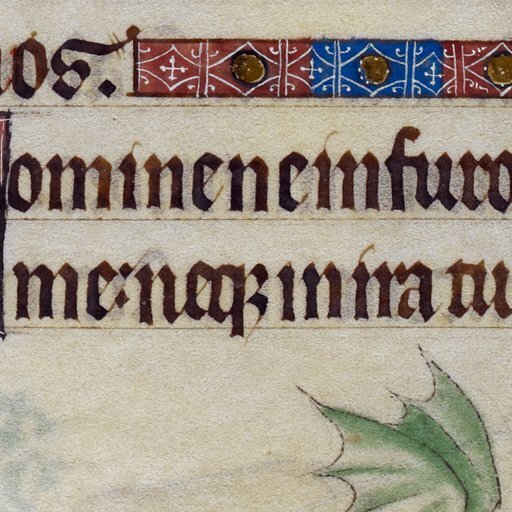 os.
omine ne in furo
me: neqꝫ in ira tu